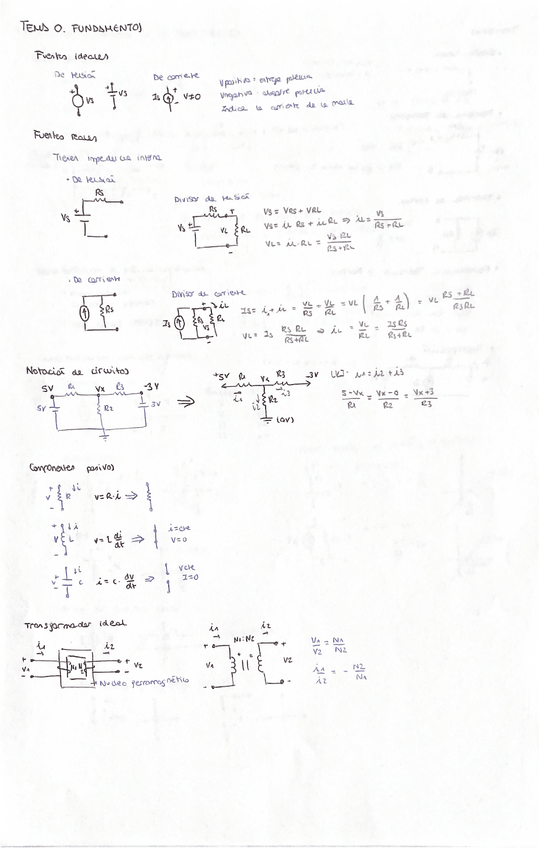 TEMA 0. FUNDAMENTOS
Fuentes ideales
De tensión
Vs
Vs
De corriente
Is
+
-
V≠0
V positivo = entrega potencia
V negativo = absorbe potencia
Indica la corriente de la malla
Fuentes Reales
Tienen impedancia interna
· De tensión
Rs
Vs
Divisor de tensión
Rs
+
Vs
VL
RL
-
Vs = VRs + VRL
Vs = iL Rs + iL RL ⇒ iL = Vs / (Rs+RL)
VL = iL · RL = Vs RL / (Rs+RL)
· De corriente
Rs
Divisor de corriente
iL
Is
Rs
RL
Is = is + iL = VL/Rs + VL/RL = VL (1/Rs + 1/RL) = VL (Rs + RL)/(Rs RL)
VL = Is Rs RL/(Rs+RL) ⇒ iL = VL/RL = Is Rs/(Rs+RL)
Notación de circuitos
5V R1 Vx R3 -3V
5V R2 3V
⇒
+5V R1 Vx R3 -3V
i1 i2 i3
R2
(0V)
i1 = i2 + i3
(5-Vx)/R1 = (Vx-0)/R2 = (Vx+3)/R3
Componentes pasivos
+ ↓i
V R
-
V = R·i ⇒
+ ↓i
V L
-
V = L di/dt ⇒
i=cte
V=0
+ ↓i
V C
-
i = C · dv/dt ⇒
Vcte
I=0
Transformador ideal
i1 i2
+ +
V1 N1 N2 V2
- -
Núcleo ferromagnético
i1 N1:N2 i2
+ +
V1 V2
- -
V1/V2 = N1/N2
i1/i2 = - N2/N1